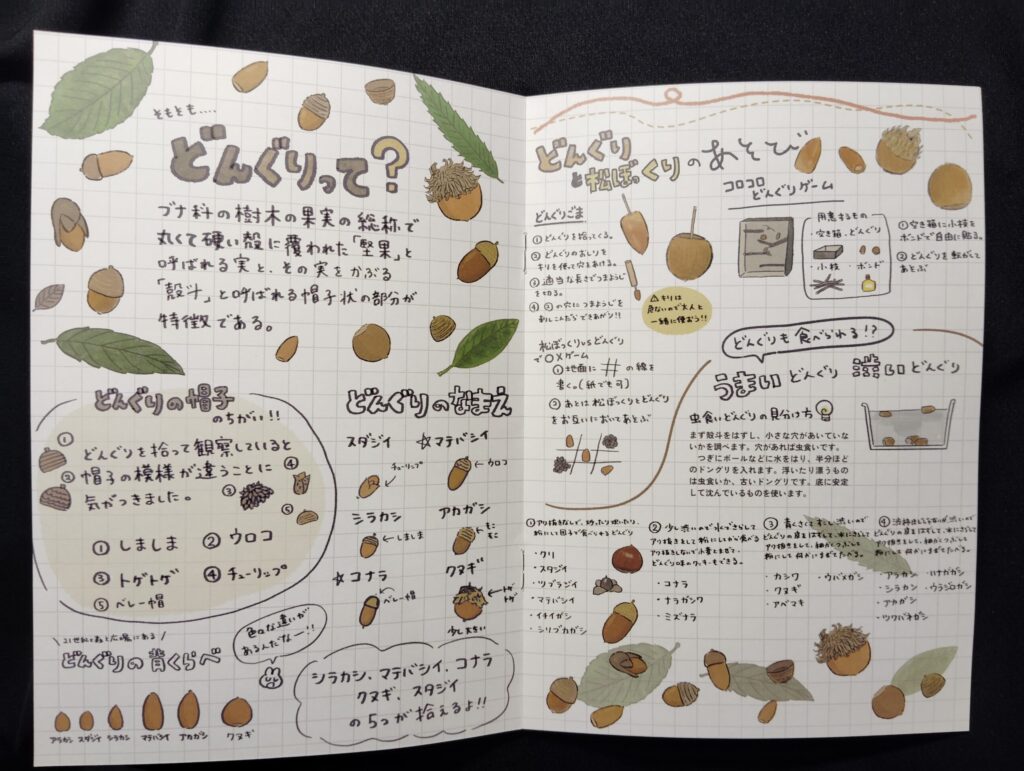 そもそも....
どんぐりって?
ブナ科の樹木の果実の総称で
丸くて硬い殻に覆われた「堅果」と
呼ばれる実と、その実をかぶる
「殻斗」と呼ばれる帽子状の部分が
特徴である。
どんぐりの帽子
のちがい!!
① どんぐりを拾って観察していると
② 帽子の模様が違うことに ④
気がつきました。 ③
⑤
① しましま ② ウロコ
③ トゲトゲ ④ チューリップ
⑤ ベレー帽
どんぐりの背くらべ
色々な違いが
あるんだなー!!
アラカシ スダジイ シラカシ マテバシイ アカガシ クヌギ
どんぐりのなまえ
スダジイ ☆マテバシイ
チューリップ ウロコ
シラカシ アカガシ
しましま もこもこ
☆コナラ クヌギ
ベレー帽 トゲトゲ
少し大きい
シラカシ、マテバシイ、コナラ
クヌギ、スダジイ
の5つが拾えるよ!!
どんぐり
と松ぼっくりのあそび
どんぐりごま
① どんぐりを拾ってくる。
② どんぐりのおしりを
キリを使って穴をあける。
③ 適当な長さでつまようじ
を切る。
④ ②の穴につまようじを
さしこんだらできあがり!!
⚠キリは
危ないので大人と
一緒に使おう!!
コロコロ
どんぐりゲーム
用意するもの
・空き箱・どんぐり
・小枝 ・ボンド
① 空き箱に小枝を
ボンドで自由に貼る。
② どんぐりを転がして
あそぶ
松ぼっくりVSどんぐり
で〇×ゲーム
① 地面に # の線を
書く。(紙でも可)
② あとは松ぼっくりとどんぐり
をお互いにおいてあそぶ
どんぐりも食べられる!?
うまいどんぐり 渋いどんぐり
虫食いどんぐりの見分け方
まず殻斗をはずし、小さな穴があいていな
いかを調べます。穴があれば虫食いです。
つぎにボールなどに水をはり、半分ほど
のドングリを入れます。浮いたり漂うもの
は虫食いか、古いドングリです。底に安定
して沈んでいるものを使います。
① アク抜きなしで、炒ったり炊いたり、
粉にして団子で食べれるどんぐり
・クリ
・スダジイ
・ツブラジイ
・マテバシイ
・イチイガシ
・シリブカガシ
② 少し渋いので水でさらして
アク抜きして粉にしてから食べる
・コナラ
・ナラガシワ
・ミズナラ
③ 青くさくてすこし渋いので
どんぐりの皮をはずして、水にさらして
アク抜きをして、細かくつぶして
・カシワ ・ウバメガシ
・クヌギ
・アベマキ
どんぐりの皮をはずして、水にさらして
アク抜きをして、細かくつぶして
・アラカシ ・ハナガガシ
・シラカシ ・ウラジロガシ
・アカガシ
・ツクバネガシ